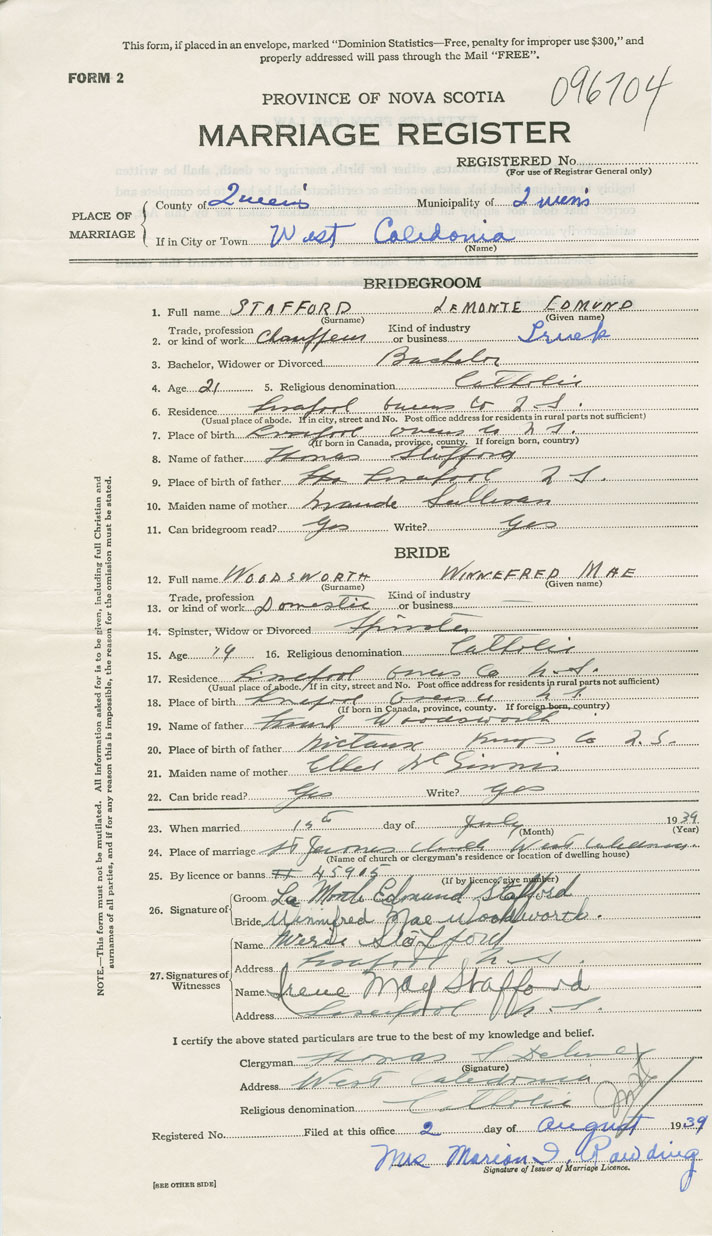 This form, if placed in an envelope, marked "Dominion Statistics—Free, penalty for improper use $300," and
properly addressed will pass through the Mail "FREE".
FORM 2
096704
PROVINCE OF NOVA SCOTIA
MARRIAGE REGISTER
REGISTERED No.
(For use of Registrar General only)
PLACE OF MARRIAGE
County of Queen's Municipality of Queen's
If in City or Town West Caledonia
(Name)
BRIDEGROOM
1. Full name STAFFORD LEMONTE EDMUND
(Surname) (Given name)
2. Trade, profession or kind of work Chauffeur Kind of industry or business Truck
3. Bachelor, Widower or Divorced Bachelor
4. Age 21 5. Religious denomination Catholic
6. Residence Liverpool Queens Co N.S.
(Usual place of abode. If in city, street and No. Post office address for residents in rural parts not sufficient)
7. Place of birth Liverpool Queens Co N.S.
(If born in Canada, province, county. If foreign born, country)
8. Name of father Thomas Stafford
9. Place of birth of father Liverpool N.S.
10. Maiden name of mother Maude Sullivan
11. Can bridegroom read? Yes Write? Yes
BRIDE
12. Full name WOODSWORTH WINNEFRED MAE
(Surname) (Given name)
13. Trade, profession or kind of work Domestic Kind of industry or business —
14. Spinster, Widow or Divorced Spinster
15. Age 19 16. Religious denomination Catholic
17. Residence Liverpool Queens Co N.S.
(Usual place of abode. If in city, street and No. Post office address for residents in rural parts not sufficient)
18. Place of birth Liverpool Queens Co N.S.
(If born in Canada, province, county. If foreign born, country)
19. Name of father Frank Woodsworth
20. Place of birth of father Nictaux Kings Co N.S.
21. Maiden name of mother Ethel McGinnis
22. Can bride read? Yes Write? Yes
23. When married day of July 1939
(Month) (Year)
24. Place of marriage St Jeromes Church West Caledonia
(Name of church or clergyman's residence or location of dwelling house)
25. By licence or banns # 45905
(If by licence, give number)
26. Signature of
Groom La Monte Edmund Stafford
Bride Winnifred Mae Woodsworth.
27. Signatures of Witnesses
Name Stafford
Address Liverpool N.S.
Name Irene May Stafford
Address Liverpool N.S.
I certify the above stated particulars are true to the best of my knowledge and belief.
Clergyman Thomas
(Signature)
Address West Caledonia
Religious denomination Catholic
Registered No. Filed at this office 2 day of August 1939
Mrs Marion I. Rawding
Signature of Issuer of Marriage Licence.
[SEE OTHER SIDE]
NOTE.—This form must not be mutilated. All information asked for is to be given, including full Christian and
surnames of all parties, and if for any reason this is impossible, the reason for the omission must be stated.